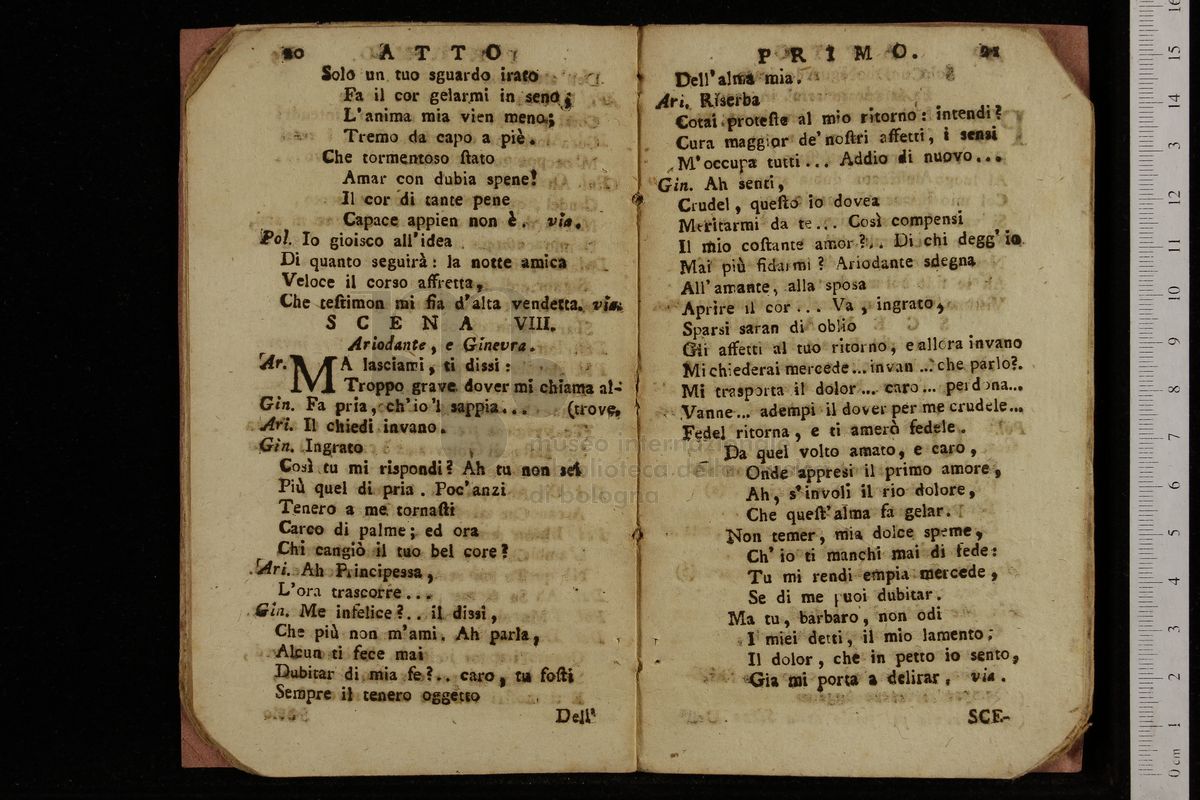 20 ATTO
Solo un tuo sguardo irato
Fa il cor gelarmi in seno;
L'anima mia vien meno;
Tremo da capo a piè.
Che tormentoso ſtato
Amar con dubia spene!
Il cor di tante pene
Capace appien non è. via.
Pol. Io gioisco all'idea
Di quanto seguirà: la notte amica
Veloce il corso affretta,
Che teſtimon mi fia d'alta vendetta. via.
SCENA VIII.
Ariodante, e Ginevra.
Ar. MA lasciami, ti dissi:
Troppo grave dover mi chiama al-
Gin. Fa pria, ch'io 'l sappia... (trove,
Ari. Il chiedi invano.
Gin. Ingrato
Così tu mi rispondi? Ah tu non sei
Più quel di pria. Poc'anzi
Tenero a me tornaſti
Carco di palme; ed ora
Chi cangiò il tuo bel core?
Ari. Ah Principessa,
L'ora trascorre...
Gin. Me infelice?.. il dissi,
Che più non m'ami. Ah parla,
Alcun ti fece mai
Dubitar di mia fe?.. caro, tu foſti
Sempre il tenero oggetto
Dell'
PRIMO. 21
Dell'alma mia.
Ari. Riserba
Cotai proteſte al mio ritorno: intendi?
Cura maggior de' noſtri affetti, i sensi
M'occupa tutti... Addio di nuovo...
Gin. Ah senti,
Crudel, queſto io dovea
Meritarmi da te... Così compensi
Il mio coſtante amor?.. Di chi degg'io
Mai più fidarmi? Ariodante sdegna
All'amante, alla sposa
Aprire il cor... Va, ingrato,
Sparsi saran di oblio
Gli affetti al tuo ritorno, e allora invano
Mi chiederai mercede... invan... che parlo?.
Mi trasporta il dolor... caro... perdona...
Vanne... adempi il dover per me crudele...
Fedel ritorna, e ti amerò fedele.
Da quel volto amato, e caro,
Onde appresi il primo amore,
Ah, s'involi il rio dolore,
Che queſt'alma fa gelar.
Non temer, mia dolce speme,
Ch' io ti manchi mai di fede:
Tu mi rendi empia mercede,
Se di me puoi dubitar.
Ma tu, barbaro, non odi
I miei detti, il mio lamento;
Il dolor, che in petto io sento,
Gia mi porta a delirar. via.
SCE-
museo internazionale
biblioteca della
di bologna